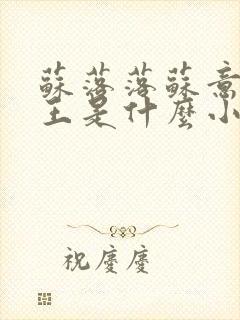 蘇落落蘇意
王是什麼小
祝慶慶